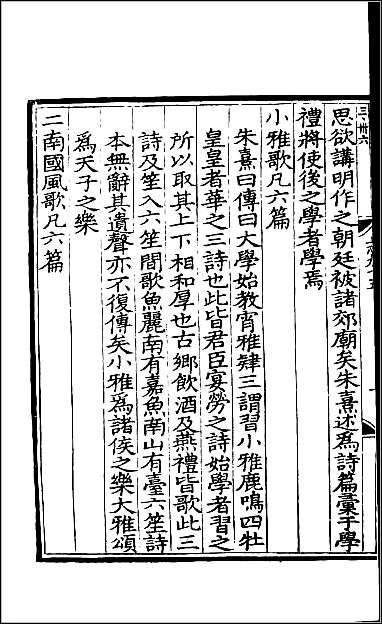 思欲講明作之朝廷被諸郊廟矣朱熹述為詩篇彙于學
禮將使後之學者學焉
小雅歌凡六篇
朱熹曰傳曰大學始教宵雅肄三謂習小雅鹿鳴四牡
皇皇者華之三詩也此皆君臣宴勞之詩始學者習之
所以取其上下相和厚也古鄉飲酒及燕禮皆歌此三
詩及笙入六笙間歌魚麗南有嘉魚南山有臺六笙詩
本無辭其遺聲亦不復傳矣小雅為諸侯之樂大雅頌
為天子之樂
二南國風歌凡六篇